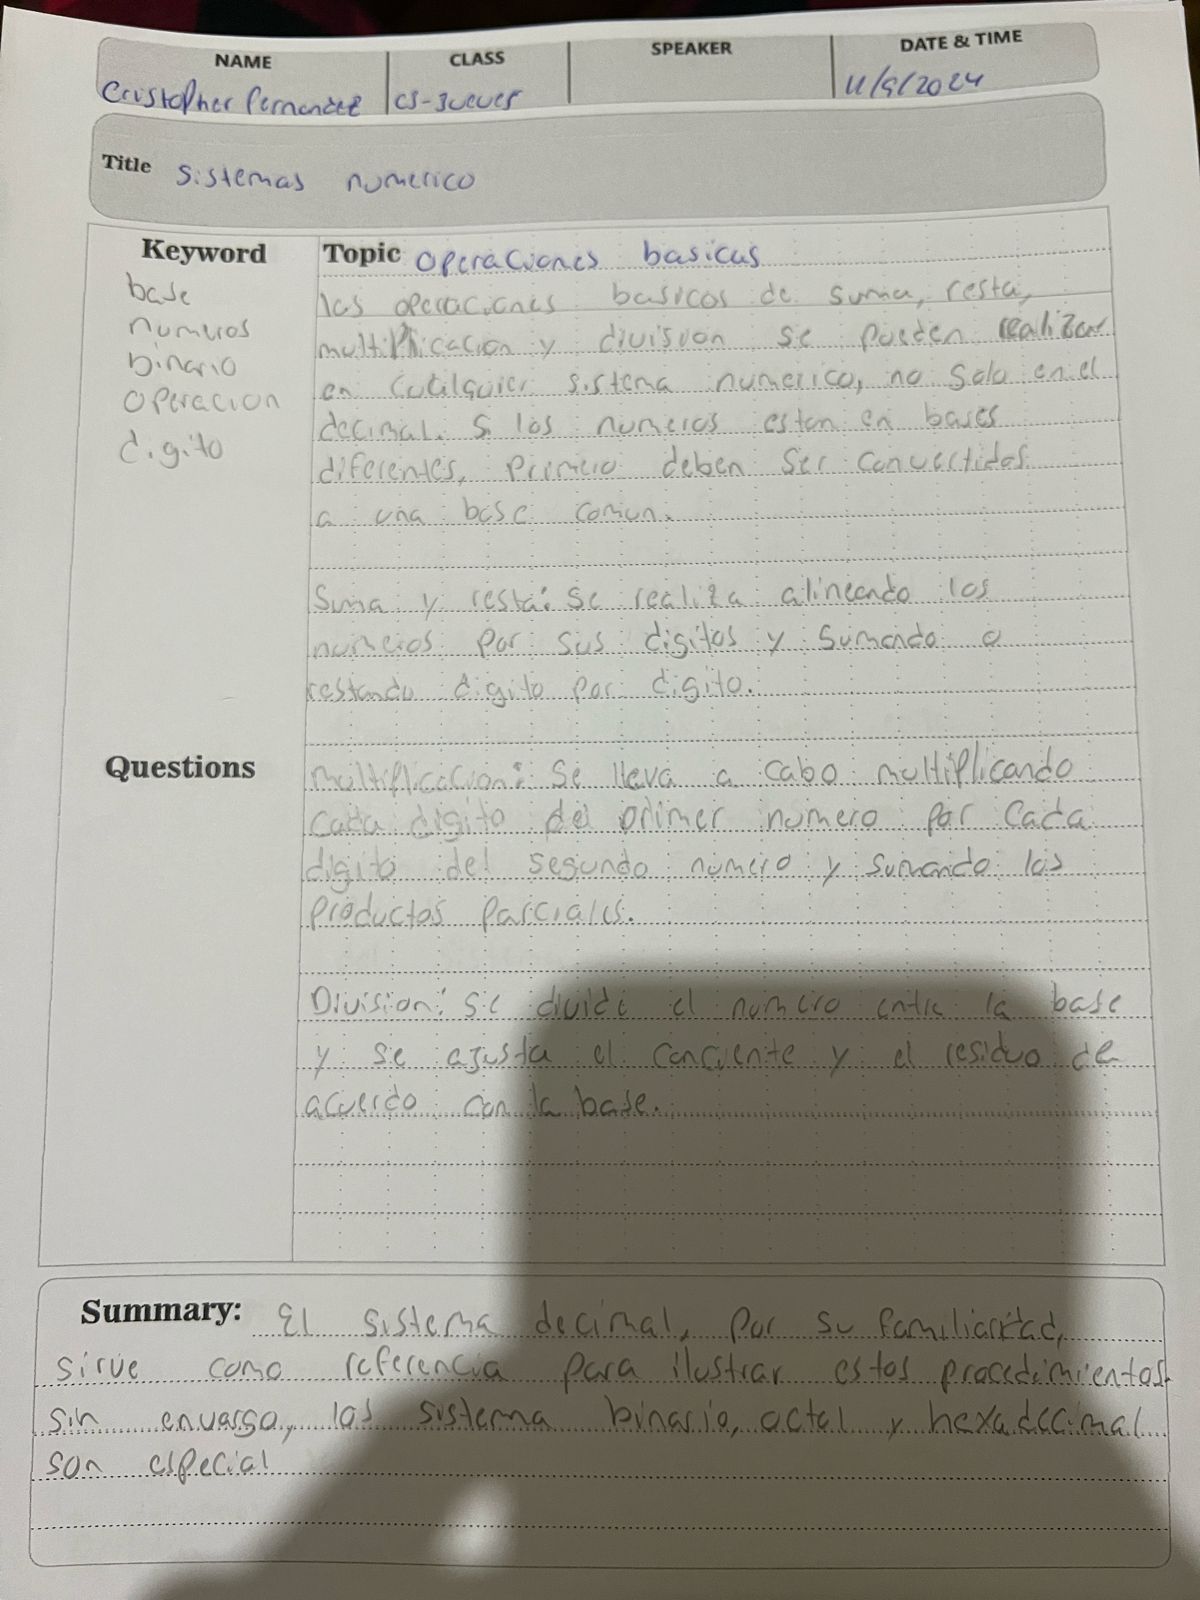 NAME CLASS SPEAKER DATE & TIME
Cristopher Fernandez CS-Jueves 11/9/2024
Title Sistemas numerico
Keyword
base
numeros
binario
operacion
digito
Topic operaciones basicas
las operaciones basicos de suma, resta,
multiplicacion y division se pueden realizar
en cualquier sistema numerico, no solo en el
decimal. Si los numeros estan en bases
diferentes, primero deben ser convertidos
a una base comun.
Suma y resta: Se realiza alineando los
numeros por sus digitos y sumando o
restando digito por digito.
Questions
multiplicacion: Se lleva a cabo multiplicando
cada digito del primer numero por cada
digito del segundo numero y sumando los
productos parciales.
Division: se divide el numero entre la base
y se ajusta el conciente y el residuo de
acuerdo con la base.
Summary: El sistema decimal, por su familiaridad,
sirve como referencia para ilustrar estos procedimientos.
sin envargo, los sistema binario, octal y hexadecimal
son especial